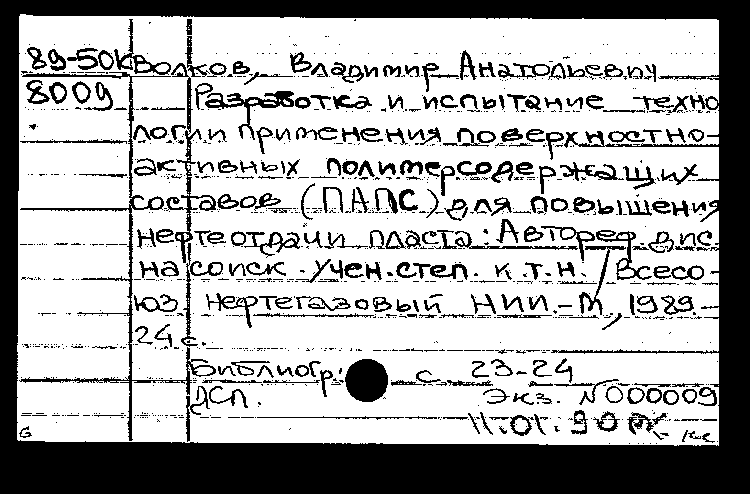 89-50К Волков, Владимир Анатольевич
8009 Разработка и испытание техно
логии применения поверхностно-
активных полимерсодержащих
составов (ПАПС) для повышения
нефтеотдачи пласта: Автореф. дис.
на соиск. учен. степ. к.т.н. / Всесо-
юз. нефтегазовый НИИ.-М, 1989.-
24 с.
Библиогр.: с. 23-24
ДСП. Экз. N000009
11.01.90